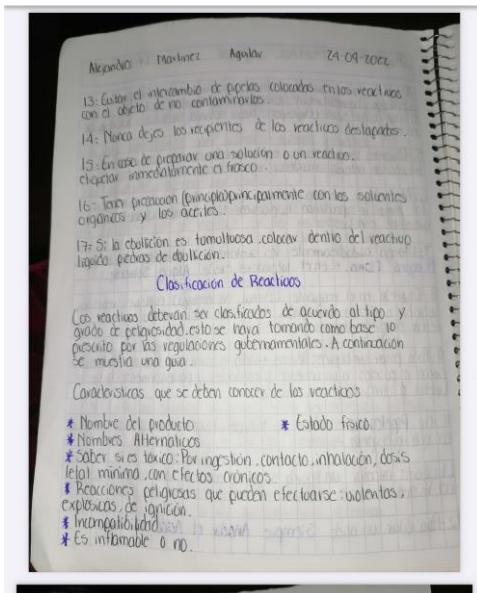 Alejandro Martinez Aguilar 24-09-2022
13: Evitar el intercambio de pipetas colocadas en los reactivos
con el objeto de no contaminarlos.
14: Nunca dejes los recipientes de los reactivos destapados.
15: En caso de preparar una solución o un reactivo.
etiquetar inmediatamente el frasco.
16: Tener precaucion (principla)principalmente con los solventes
orgánicos y los aceites.
17: Si la ebullición es tomultuosa.colocar dentro del reactivo
liquido piedras de ebullición.
Clasificación de Reactivos
Los reactivos deberan ser clasificados de acuerdo al tipo y
grado de peligrosidad.esto se haya tomando como base lo
prescrito por las regulaciones gubernamentales. A continuación
se muestra una guia.
Caracteristicas que se deben conocer de los reactivos
* Nombre del producto * Estado fisico.
* Nombres Alternativos
* Saber si es tóxico: Por ingestión.contacto.inhalación, dosis
letal minima.con efectos crónicos.
* Reacciones peligrosas que pueden efectuarse:violentas,
explosivas, de ignición.
* Incompatibilidad.
* Es inflamable o no.